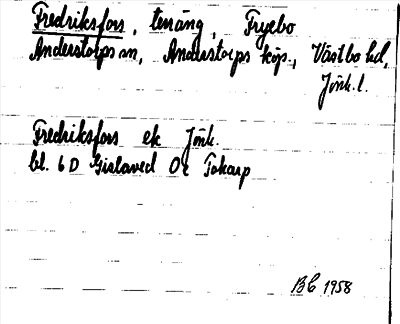 Fredriksfors, tenäng, Fryebo
Anderstorps sn, Anderstorps köp., Västbo hd,
Jönk. l.
Fredriksfors ek Jönk.
bl. 6D Gislaved Ö Tokarp
BE 1958